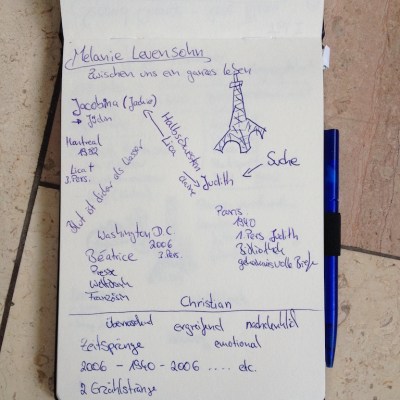 Melanie Levensohn
Zwischen uns ein ganzes Leben
Jacobina (Jackie)
→ Jüdin
Montreal
1982
Lica †
3. Pers.
Halbschwestern
Lica
Judith
← Suche
Blut ist dicker als Wasser
Washington D.C
2006
3. Pers.
Béatrice
Presse
Weltbank
Französin
Paris
1940
1. Pers Judith
Bibliothek
geheimnisvolle Briefe
Christian
überraschend ergreifend nachdenklich
Zeitsprünge emotional
2006 - 1940 - 2006 ..... etc.
2 Erzählstränge